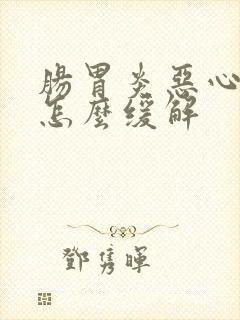 腸胃炎惡心
怎麼緩解
鄧雋暉